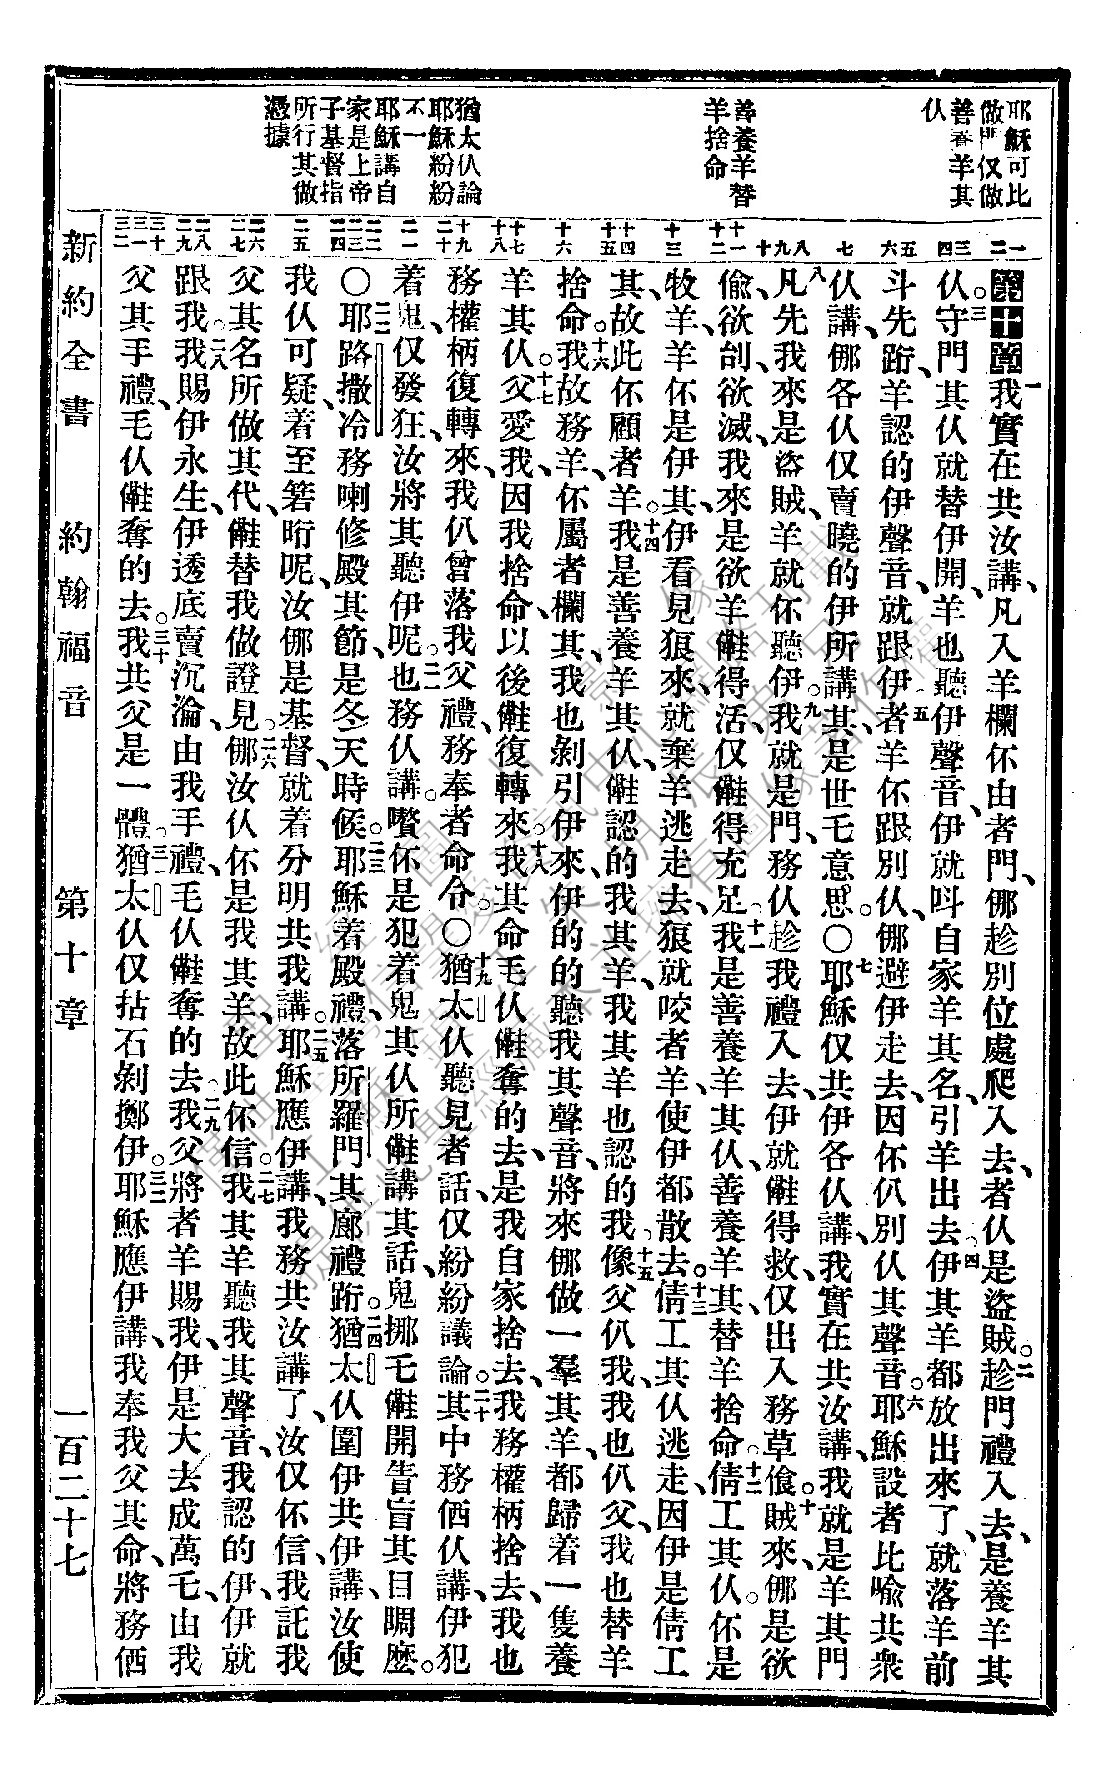 耶穌可比
做門仅做
善養羊其
仈
善養羊替
羊捨命
猶太仈論
耶穌紛紛
不一
耶穌講自
家是上帝
子基督指
所行其做
憑據
第十章 一我實在共汝講、凡入羊欄伓由者門、㑚趁別位處爬入去、者仈是盜賊。二趁門禮入去、是養羊其
仈。三守門其仈就替伊開、羊也聽伊聲音、伊就呌自家羊其名、引羊出去、四伊其羊都放出來了、就落羊前
斗先跡、羊認的伊聲音、就跟伊、五者羊伓跟別仈、㑚避伊走去、因伓仈別仈其聲音。六耶穌設者比喩共衆
仈講、㑚各仈仅賣曉的伊所講、其是世乇意思。〇七耶穌仅共伊各仈講、我實在共汝講、我就是羊其門
八凡先我來是盜賊、羊就伓聽伊。九我就是門、務仈趁我禮入去、伊就㑸得救、仅出入務草飡。十賊來、㑚是欲
偸、欲刣、欲滅、我來是欲羊㑸得活、仅㑸得充足、十一我是善養羊其仈、善養羊其、替羊捨命。十二倩工其仈、伓是
牧羊、羊伓是伊其、伊看見狼來、就棄羊逃走去、狼就咬者羊、使伊都散去。十三倩工其仈逃走、因伊是倩工
其、故此伓顧者羊。十四我是善養羊其仈、㑸認的我其羊、我其羊也認的我、十五像父仈我、我也仈父、我也替羊
捨命。十六我故務羊、伓屬者欄其、我也剝引伊來、伊的的聽我其聲音、將來㑚做一羣其羊、都歸着一隻養
羊其仈。十七父愛我、因我捨命、以後㑸復轉來、十八我其命乇仈㑸奪的去、是我自家捨去、我務權柄捨去、我也
務權柄復轉來、我仈曾落我父禮務奉者命令。〇十九猶太仈聽見者話、仅紛紛議論、二十其中務価仈講、伊犯
着鬼、仅發狂、汝將其聽伊呢。二一也務仈講。嚽伓是犯着鬼其仈所㑸講其話、鬼挪乇㑸開告盲其目睭麽。
〇二二耶路撒冷務喇修殿其節、是冬天時候。二三耶穌着殿禮、落所羅門其廊禮跡。二四猶太仈圍伊共伊講、汝使
我仈可疑、着至箬晍呢、汝㑚是基督、就着分明共我講。二五耶穌應伊講、我務共汝講了、汝仅伓信、我託我
父其名所做其代、㑸替我做證見。二六㑚汝仈伓是我其羊、故此伓信。二七我其羊聽我其聲音、我認的伊、伊就
跟我。二八我賜伊永生、伊透底賣沉淪、由我手禮、乇仈㑸奪的去、二九我父將者羊賜我、伊是大去成萬乇、由我
父其手禮、乇仈㑸奪的去。三十我共父是一體。三一猶太仈仅拈石剝擲伊。三二耶穌應伊講、我奉我父其命、將務価
新約全書 約翰福音 第十章 一百二十七